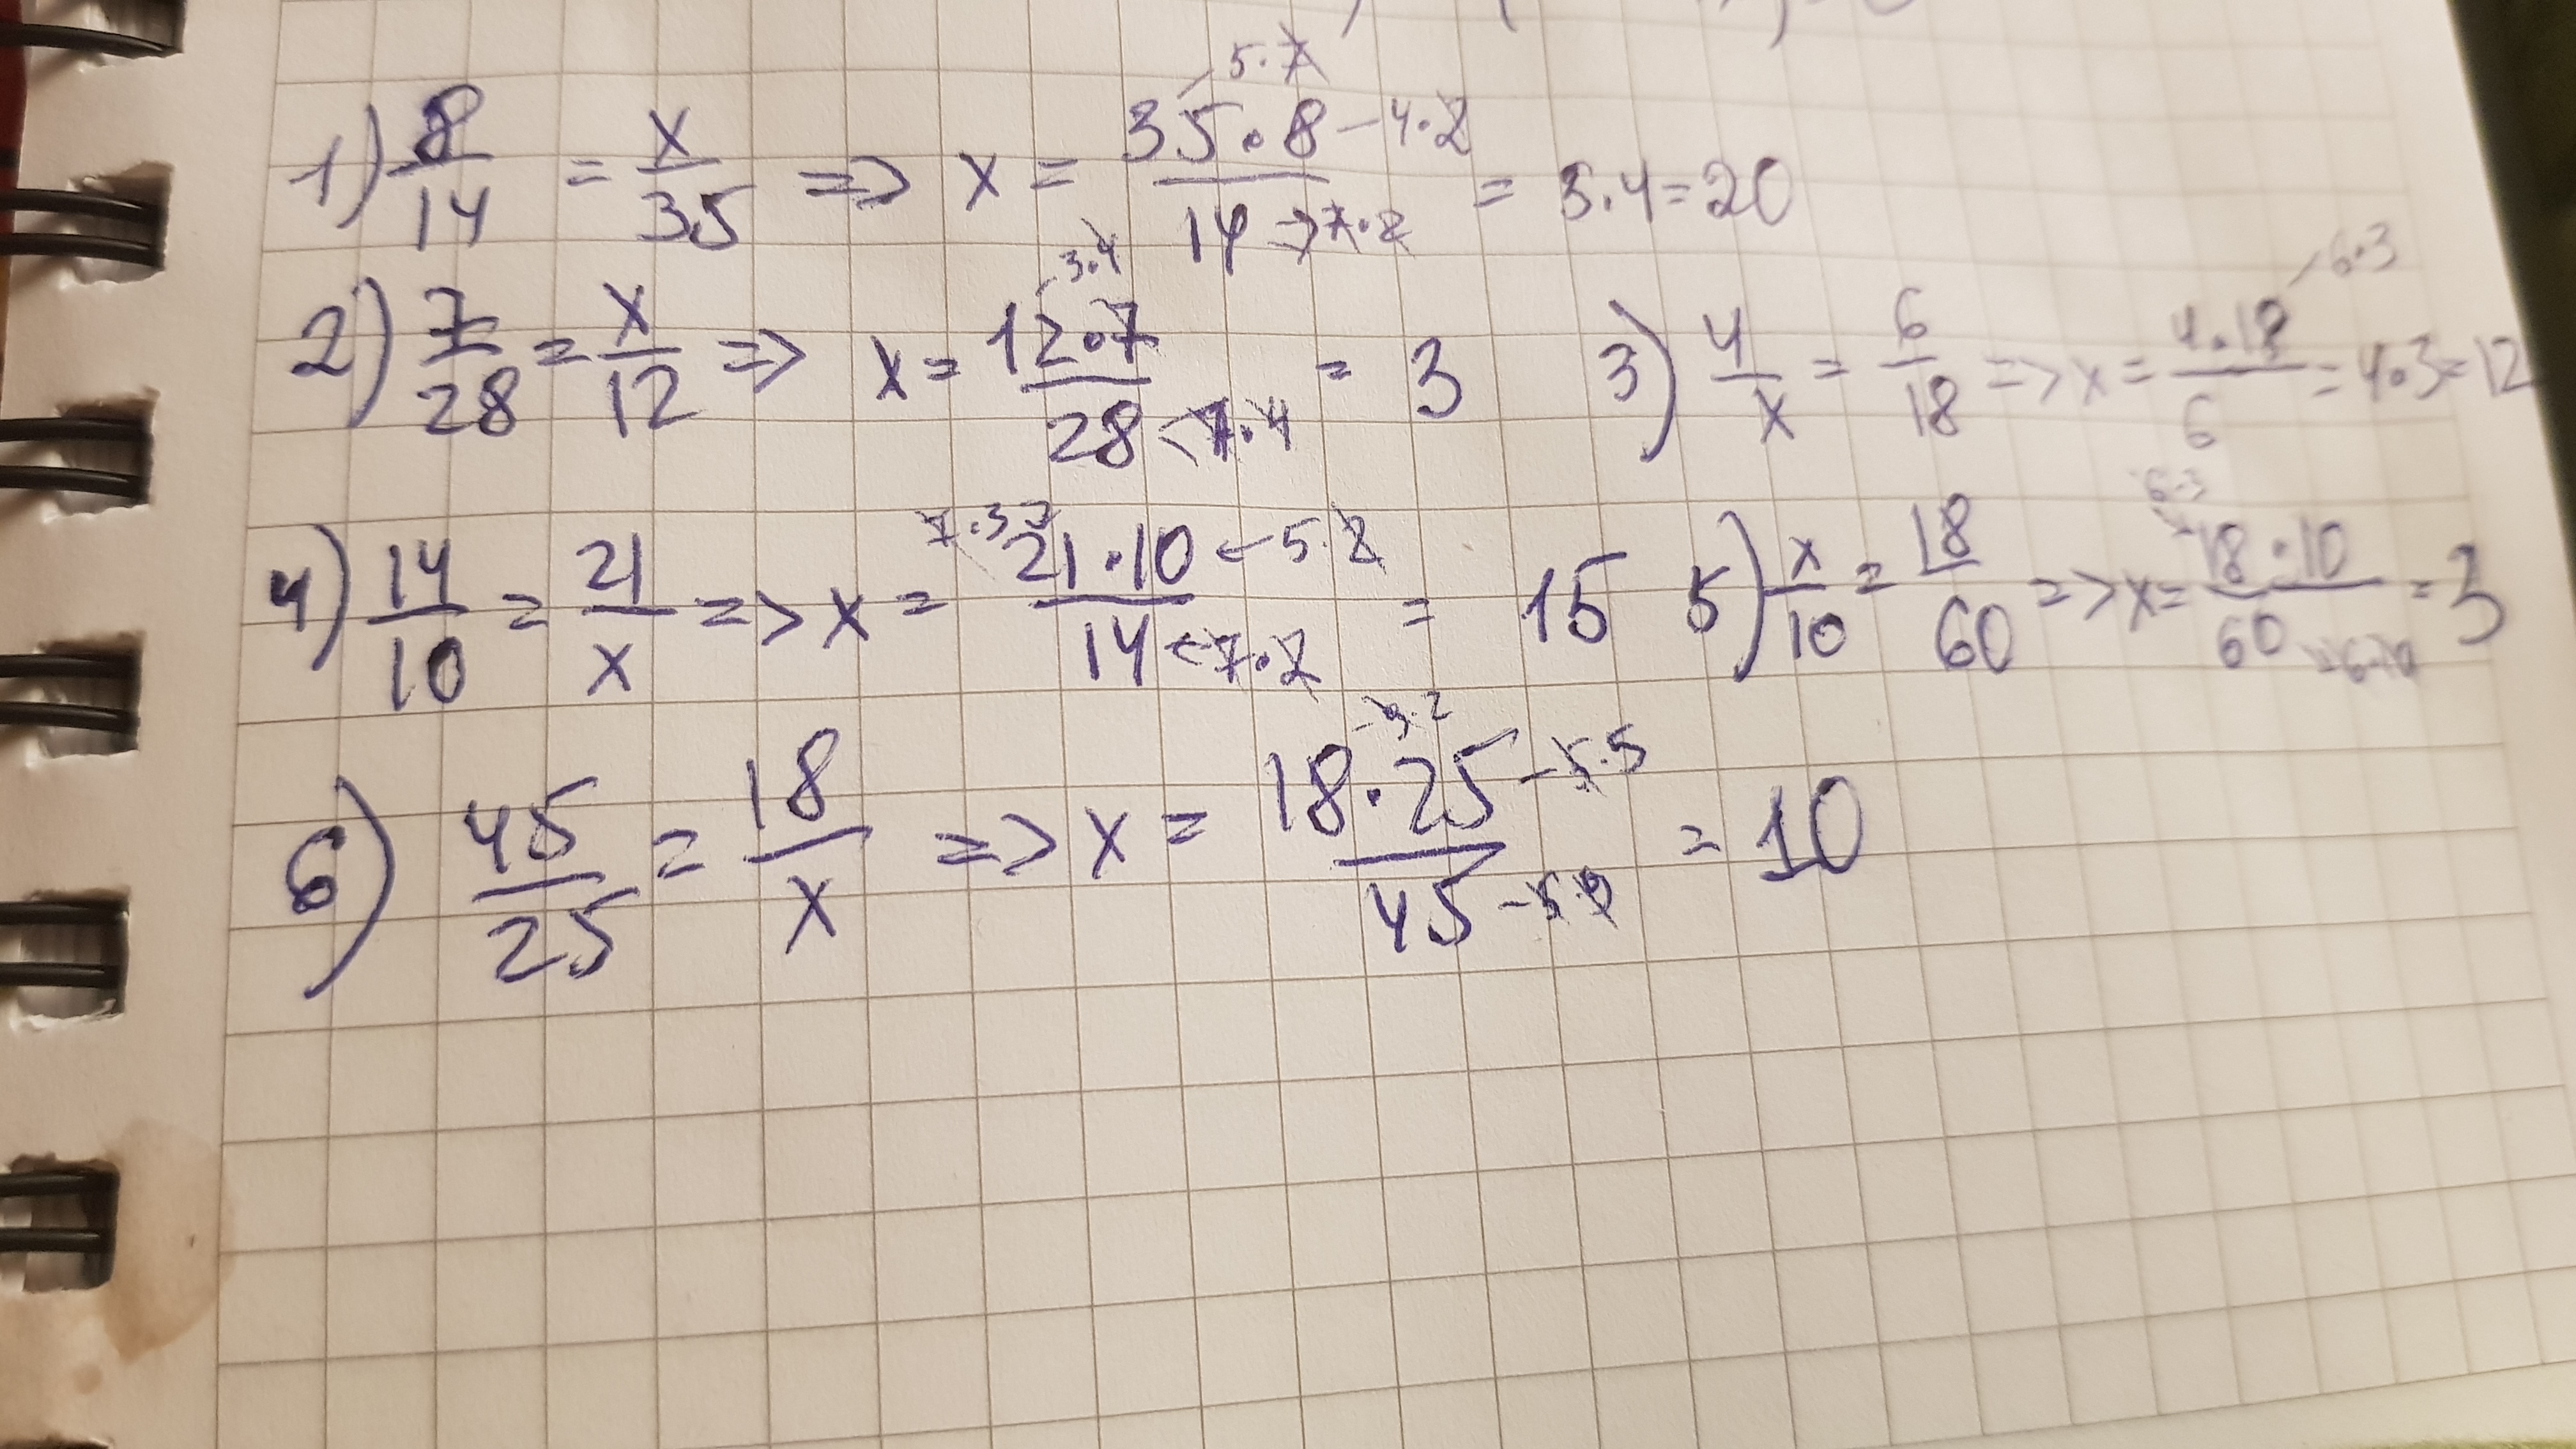 1) 8/14 = x/35 => x = 35·8/14 = 5·4=20
5·7
-4·2
->7·2
2) 7/28 = x/12 => x = 12·7/28 = 3
3·4
7·4
3) 4/x = 6/18 => x = 4·18/6 = 4·3=12
6·3
4) 14/10 = 21/x => x = 21·10/14 = 15
7·3
<-5·2
<-7·2
5) x/10 = 18/60 => x = 18·10/60 = 3
6·3
6·10
6) 45/25 = 18/x => x = 18·25/45 = 10
-9·2
-5·5
-5·9